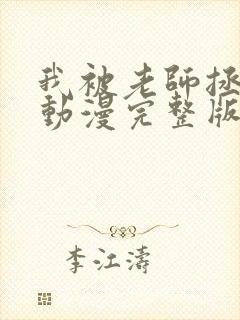 我被老師拯
動漫完整版
李江濤